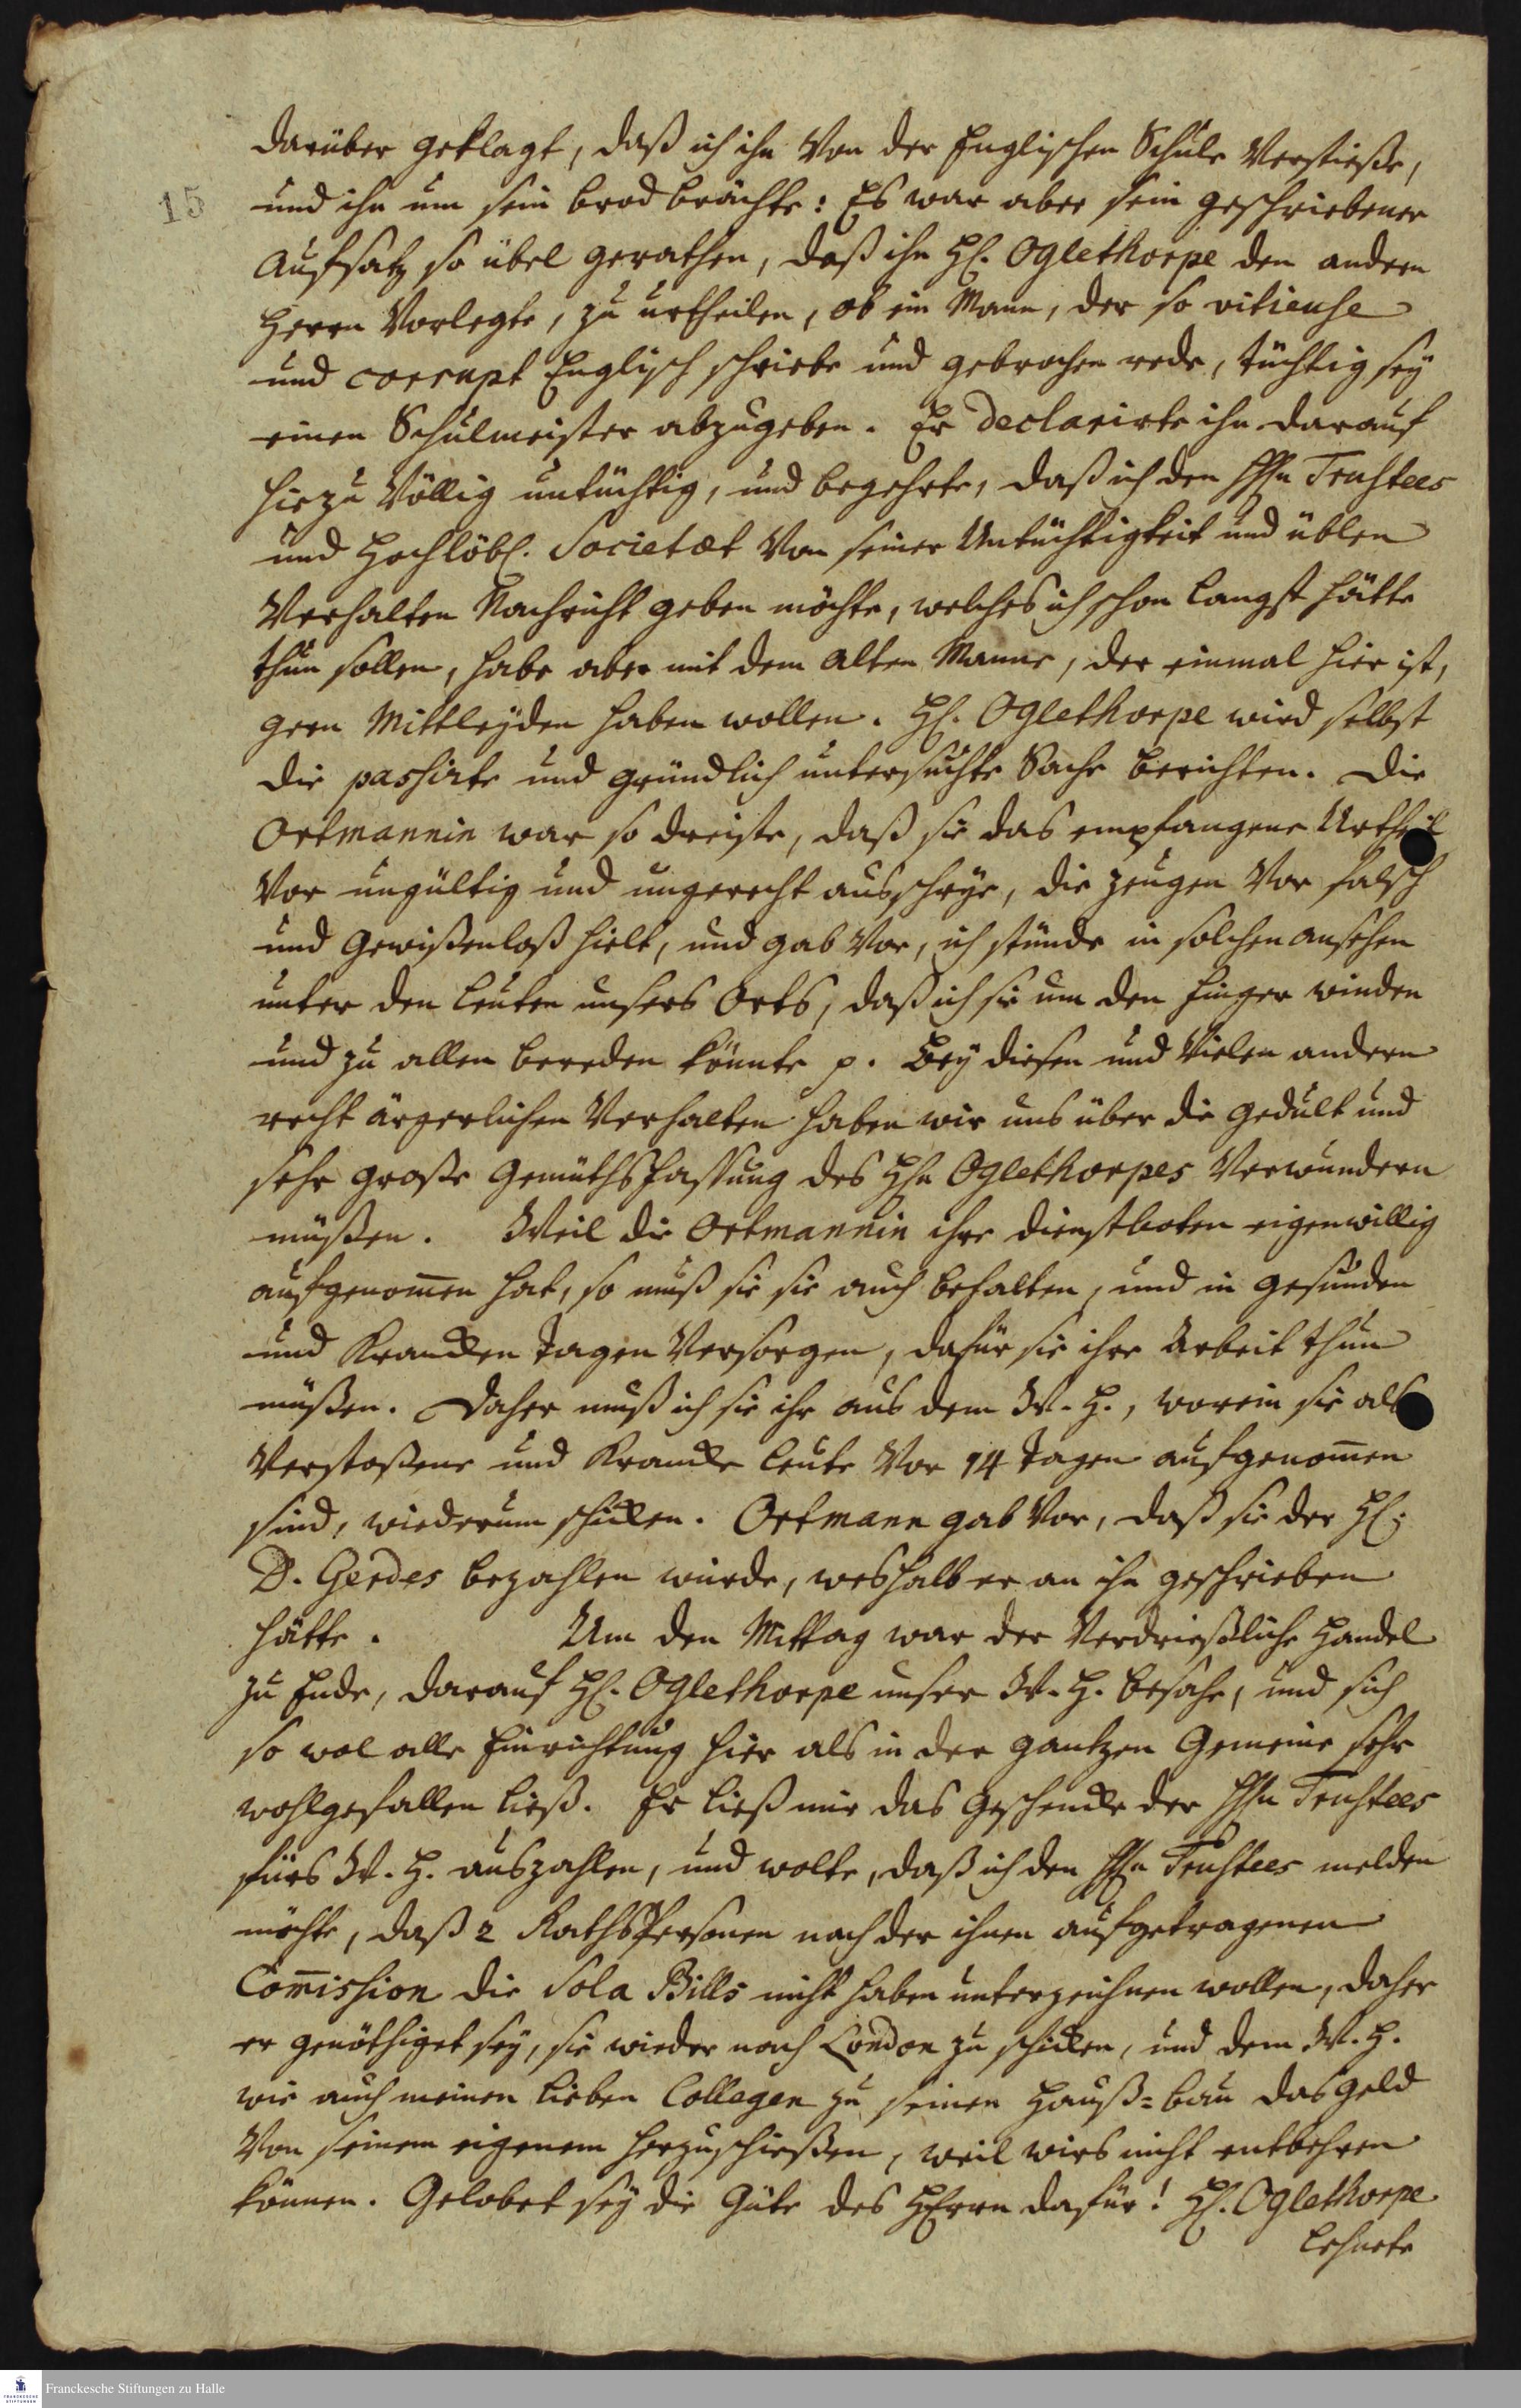 darüber geklagt, daß ich ihn von der Englischen Schule verstieße,
15
und ihn um sein brod brächte: Es war aber sein geschriebener
Aufsatz so übel gerathen, daß ihn H. Oglethorpe den andern
Herrn vorlegte, zu urtheilen, ob ein Mann, der so vitieuse
und corrupt Englisch schriebe und gebrochen rede, tüchtig sey
einen Schulmeister abzugeben. Er declarirte ihn darauf
hiezu völlig untüchtig, und begehrte, daß ich den HHn Trustees
und Hochlöbl. Societæt von seiner Untüchtigkeit und üblen
Verhalten Nachricht geben möchte, welches ich schon langst hätte
thun sollen, habe aber mit dem alten Manne, der einmal hier ist,
gern Mittleyden haben wollen. H. Oglethorpe wird selbst
die passirte und gründlich untersuchte Sache berichten. Die
Ortmannin war so dreiste, daß sie das empfangene Urtheil
vor ungültig und ungerecht ausschrye, die zeugen vor falsch
und gewißenloß hielt, und gab vor, ich stünde in solchen ansehen
unter den leuten unsers Orts, daß ich sie um den finger winden
und zu allen bereden könnte p. Bey diesen und vielen andern
recht ärgerlichen Verhalten haben wir uns über die gedult und
sehr große Gemüthsfassung des Hn Oglethorpes verwundern
müßen. Weil die Ortmannin ihre dienstboten eigenwillig
aufgenom̄en hat, so muß sie sie auch behalten, und in gesunden
und Krancken tagen versorgen, dafür sie ihre Arbeit thun
müßen. Daher muß ich sie ihr aus dem W. H., worein sie als
Verstoßene und Krancke leute vor 14 tagen aufgenom̄en
sind, wiederum schicken. Ortmann gab vor, daß sie der H.
D. Gerdes bezahlen würde, weshalb er an ihn geschrieben
hätte. Um den Mittag war der verdrießliche Handel
zu Ende, darauf H. Oglethorpe unser W. H. besahe, und sich
so wol alle Einrichtung hier als in der gantzen Gemeine sehr
wohlgefallen ließ. Er ließ mir das Geschencke der HHn Trustees
fürs W. H. auszahlen, und wolte, daß ich den HHn Trustees melden
möchte, daß 2 RathsPersonen nach der ihnen aufgetragenen
Com̄ission die Sola Bills nicht haben unterzeichnen wollen, daher
er genöthiget sey, sie wieder nach London zu schicken, und dem W. H.
wie auch meinen lieben Collegen zu seinen Hauß=bau das geld
von seinem eigenem herzuschießen, weil wirs nicht entbehren
können. Gelobet sey die Güte des HErrn dafür! H. Oglethorpe
lehnete
Franckesche Stiftungen zu Halle